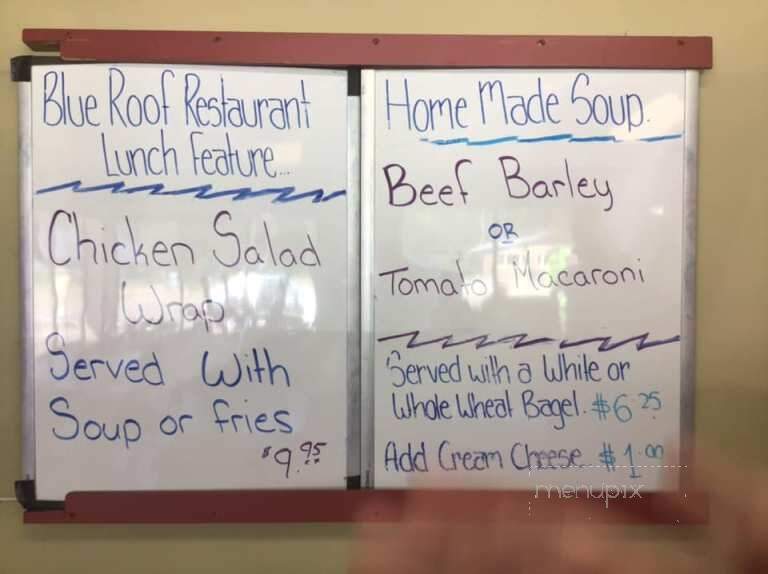 Blue Roof Restaurant
Lunch Feature...
Chicken Salad
Wrap
Served With
Soup or fries
$9.95
Home Made Soup.
Beef Barley
OR
Tomato Macaroni
Served with a White or
Whole Wheat Bagel. $6.25
Add Cream Cheese $1.00
menupix